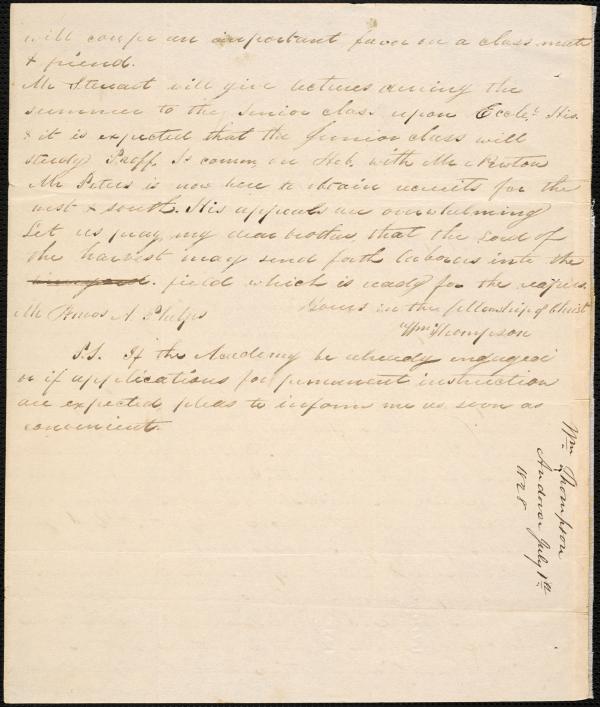 will confer an important favor on a class mate
& friend.
Mr Stewart will give lectures during the
summer to the senior class upon Eccle. His.
& it is expected that the Junior class will
study Proff. S's comm. on Heb. with Mr
Mr Peters is now here to obtain recruits for the
west & south. His appeals are overwhelming
Let us pray, my dear brother, that the Lord of
the harvest may send forth labourers into the
field which is ready for the reapers.
Mr Amos A Phelps
Yours in the fellowship of Christ
Wm Thompson
P.S. If the Academy be already engaged
or if applications for permanent instruction
are expected pleas to inform me as soon as
convenient.
Wm Thompson
Andover July 1st
1828